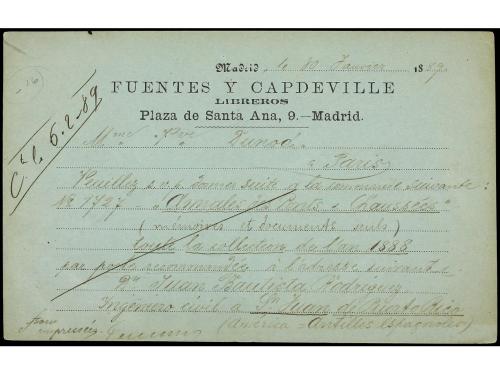 Madrid, le 30 Janvier 1889.
FUENTES Y CAPDEVILLE
LIBREROS
Plaza de Santa Ana, 9.—Madrid.
6-2-89
Mme Vve Dunod.
à Paris
Veuillez donner suite à la commande suivante:
Nº 1727 "Annales des Ponts & Chaussées"
(mémoires et documents seuls)
toute la collection de l'an 1888
par poste recommandée à l'adresse suivante:
Dn Juan Bautista Rodriguez
Ingeniero civil à Sn Juan de Puerto Rico
(América = Antilles espagnoles)